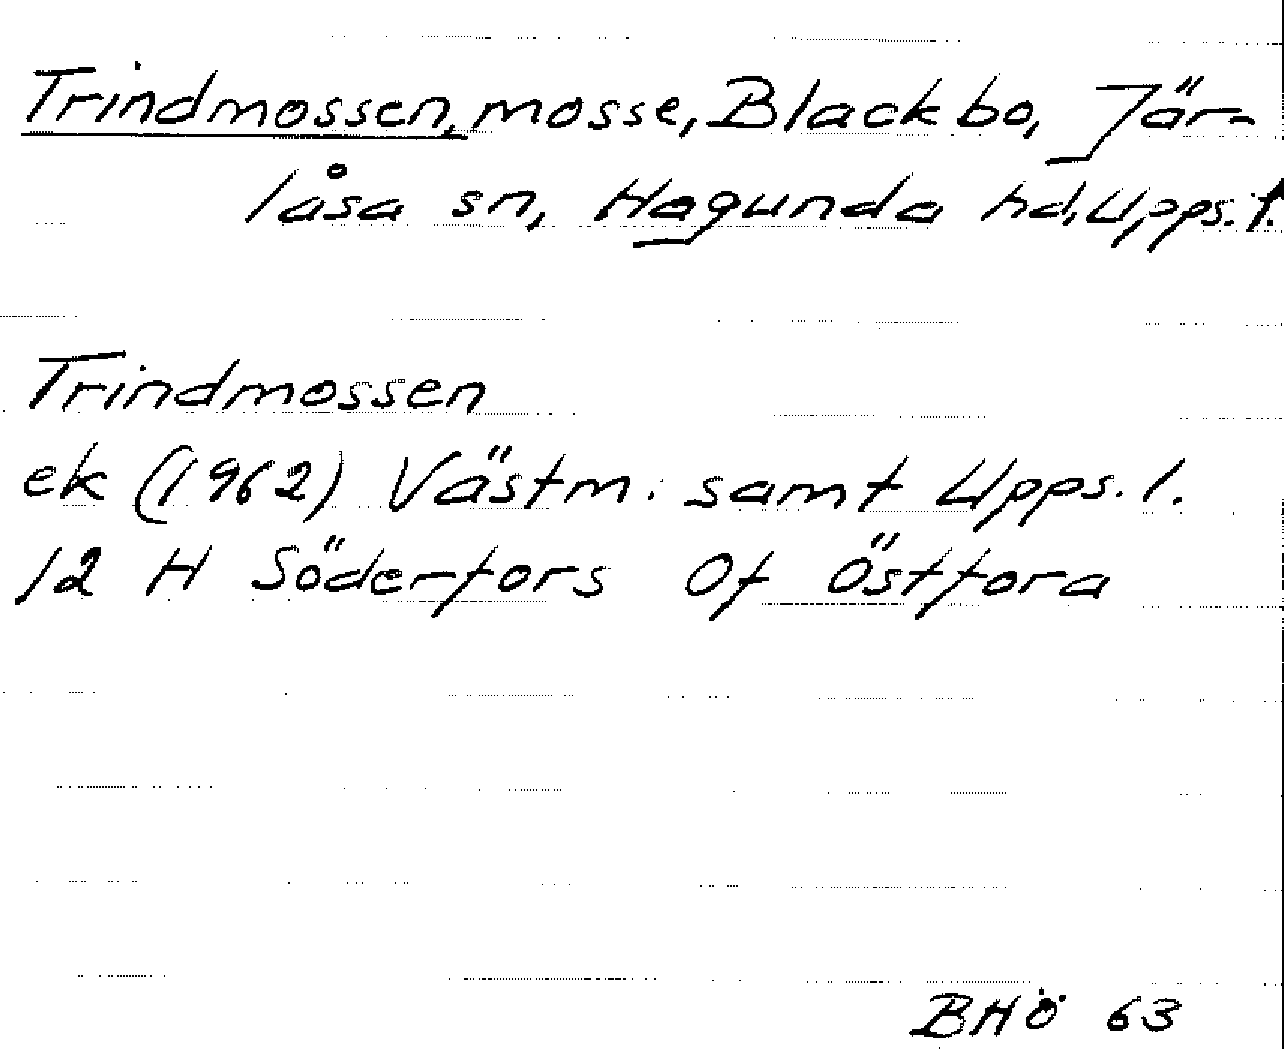 Trindmossen, mosse, Blackbo, Jär-
låsa sn, Hagunda hd, Upps. l.
Trindmossen
ek (1962) Västm. samt Upps. l.
12 H Söderfors 0f Östfora
BHÖ 63